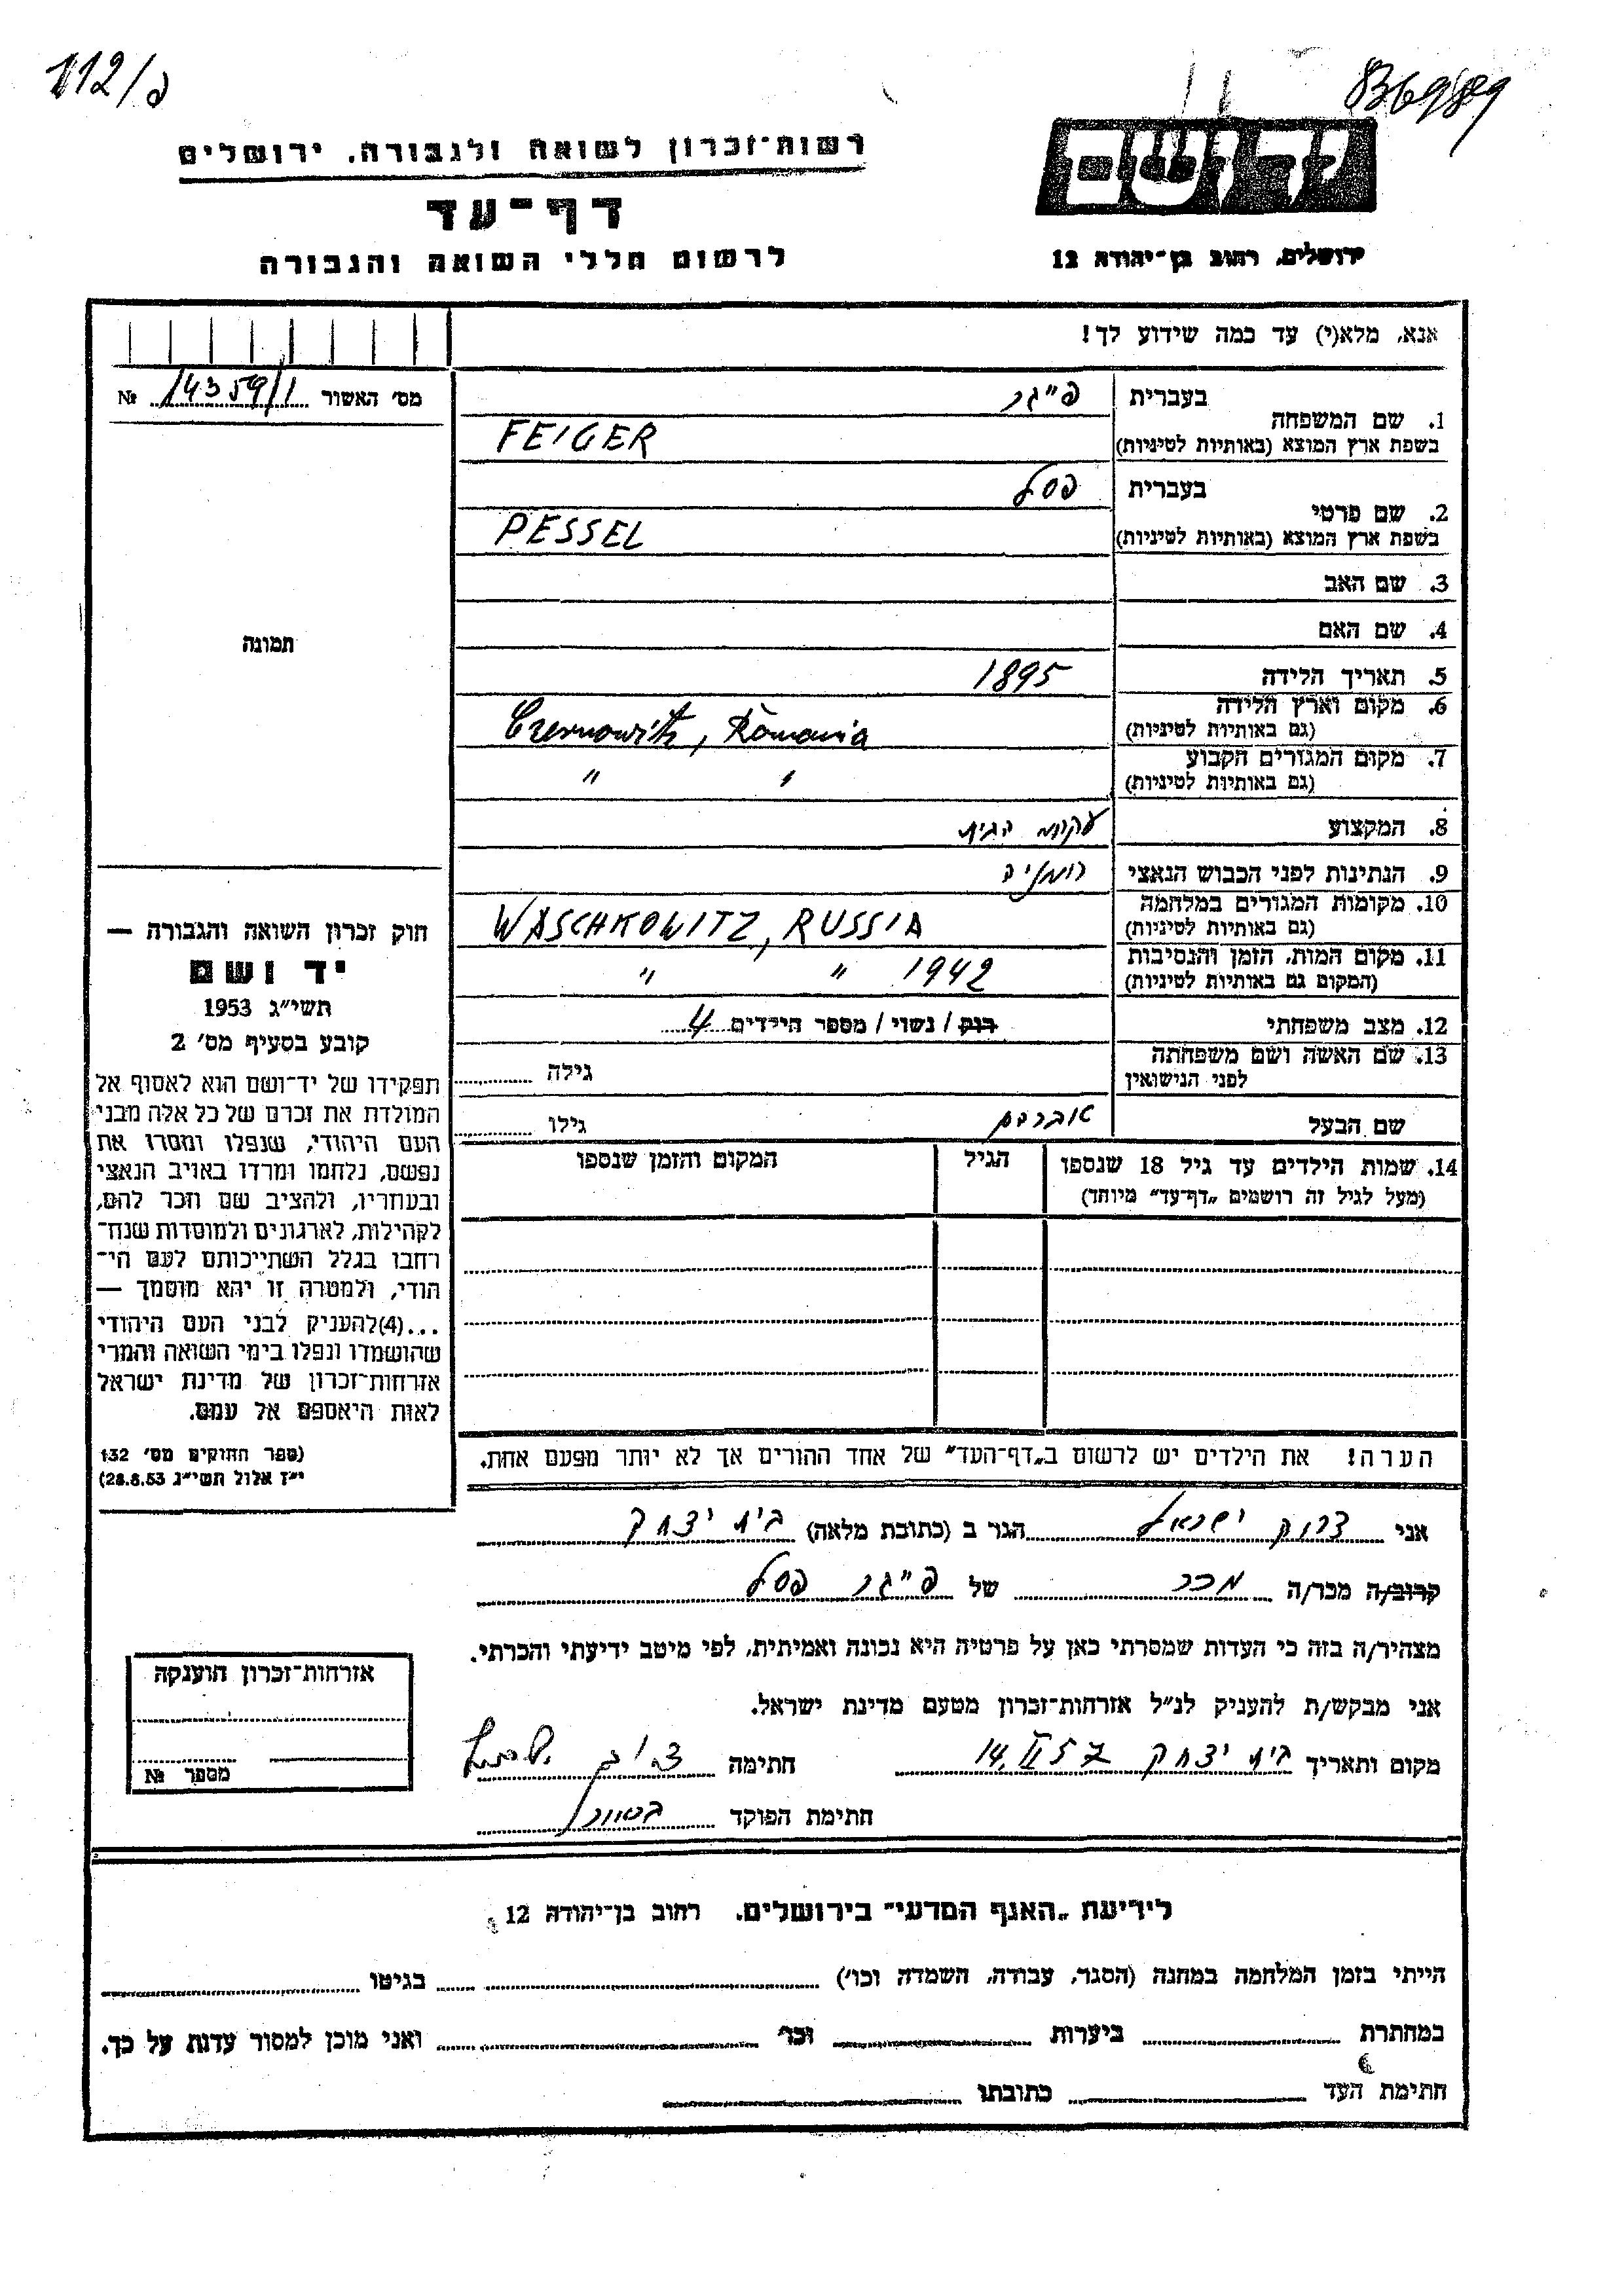 112/פ
836989
רשות־זכרון לשואה ולגבורה, ירושלים
יד ושם
דף־עד
לרשום חללי השואה והגבורה
ירושלים, רחוב בן־יהודה 12
אנא, מלא(י) עד כמה שידוע לך!
מס׳ האשור 14359/1 №
תמונה
1. שם המשפחה
בעברית פייגר
בשפת ארץ המוצא (באותיות לטיניות) FEIGER
2. שם פרטי
בעברית פסל
בשפת ארץ המוצא (באותיות לטיניות) PESSEL
3. שם האב
4. שם האם
5. תאריך הלידה 1895
6. מקום וארץ הלידה
(גם באותיות לטיניות) Czernowitz, Romania
7. מקום המגורים הקבוע
(גם באותיות לטיניות) " "
8. המקצוע עקרת הבית
9. הנתינות לפני הכבוש הנאצי רומניה
10. מקומות המגורים במלחמה
(גם באותיות לטיניות) WASCHKOWITZ, RUSSIA
11. מקום המות, הזמן והנסיבות
(המקום גם באותיות לטיניות) " " 1942
12. מצב משפחתי רווק / נשוי / מספר הילדים 4
13. שם האשה ושם משפחתה
לפני הנישואין גילה
שם הבעל אברהם גילו
14. שמות הילדים עד גיל 18 שנספו הגיל המקום והזמן שנספו
(מעל לגיל זה רושמים „דף־עד״ מיוחד)
הערה! את הילדים יש לרשום ב„דף־העד״ של אחד ההורים אך לא יותר מפעם אחת.
חוק זכרון השואה והגבורה —
יד ושם
תשי״ג 1953
קובע בסעיף מס׳ 2
תפקידו של יד־ושם הוא לאסוף אל
המולדת את זכרם של כל אלה מבני
העם היהודי, שנפלו ומסרו את
נפשם, נלחמו ומרדו באויב הנאצי
ובעוזריו, ולהציב שם וזכר להם,
לקהילות, לארגונים ולמוסדות שנח־
רחבו בגלל השתייכותם לעם הי־
הודי, ולמטרה זו יהא מוסמך —
...(4) להעניק לבני העם היהודי
שהושמדו ונפלו בימי השואה והמרי
אזרחות־זכרון של מדינת ישראל
לאות היאספם אל עמם.
(ספר החוקים מס׳ 132
י״ז אלול תשי״ג 28.8.53)
אני ישראל הגר ב (כתובת מלאה) בית יצחק
קרוב/ה מכר/ה מכר של פייגר פסל
מצהיר/ה בזה כי העדות שמסרתי כאן על פרטיה היא נכונה ואמיתית, לפי מיטב ידיעתי והכרתי.
אני מבקש/ת להעניק לנ״ל אזרחות־זכרון מטעם מדינת ישראל.
מקום ותאריך בית יצחק 14.II 57 חתימה
חתימת הפוקד
אזרחות־זכרון הוענקה
מספר №
לידיעת „האגף המדעי״ בירושלים, רחוב בן־יהודה 12
הייתי בזמן המלחמה במחנה (הסגר, עבודה, השמדה וכו׳) בגיטו
במחתרת ביערות וכו׳ ואני מוכן למסור עדות על כך.
חתימת העד כתובתו